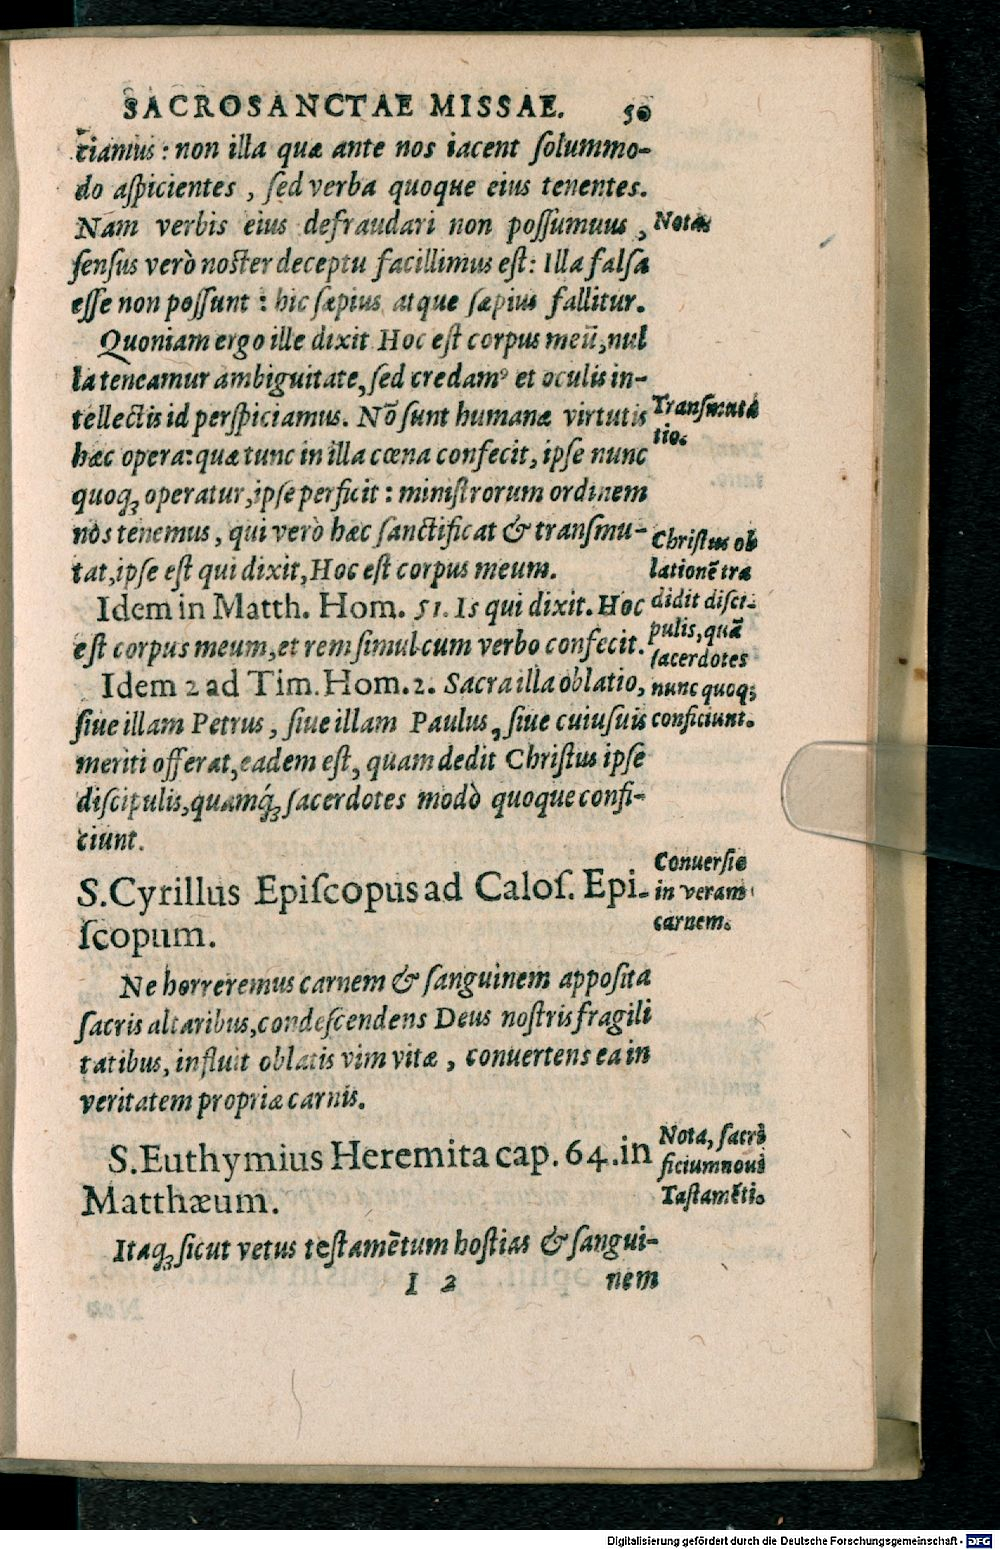 SACROSANCTAE MISSAE. 50
ciamus: non illa quæ ante nos iacent ſolummo-
do aſpicientes, ſed verba quoque eius tenentes.
Nam verbis eius defraudari non poſſumuus,
ſenſus verò noſter deceptu facillimus eſt: Illa falſa
eſſe non poſſunt: hic ſæpius atque ſæpius fallitur.
Quoniam ergo ille dixit Hoc eſt corpus meũ, nul
la teneamur ambiguitate, ſed credamꝰ et oculis in-
tellectis id perſpiciamus. Nõ ſunt humanæ virtutis
hæc opera: quæ tunc in illa cœna confecit, ipſe nunc
quoq; operatur, ipſe perficit: miniſtrorum ordinem
nos tenemus, qui verò hæc ſanctificat & tranſmu-
tat, ipſe eſt qui dixit, Hoc eſt corpus meum.
Idem in Matth. Hom. 51. Is qui dixit. Hoc
eſt corpus meum, et rem ſimul cum verbo confecit.
Idem 2 ad Tim. Hom. 2. Sacra illa oblatio,
ſiue illam Petrus, ſiue illam Paulus, ſiue cuiuſuis
meriti offerat, eadem eſt, quam dedit Chriſtus ipſe
diſcipulis, quamq́; ſacerdotes modò quoque confi-
ciunt.
S. Cyrillus Epiſcopus ad Caloſ. Epi-
ſcopum.
Ne horreremus carnem & ſanguinem appoſita
ſacris altaribus, condeſcendens Deus noſtris fragili
tatibus, influit oblatis vim vitæ, conuertens ea in
veritatem propriæ carnis.
S. Euthymius Heremita cap. 64. in
Matthæum.
Itaq; ſicut vetus teſtamẽtum hoſtias & ſangui-
I 2 nem
Nota.
Tranſmuta
tio.
Chriſtus ob
lationẽ tra
didit diſci-
pulis, quã
ſacerdotes
nunc quoq;
conficiunt.
Conuerſio
in veram
carnem.
Nota, ſacri
ficium noui
Taſtamẽti.
Digitalisierung gefördert durch die Deutsche Forschungsgemeinschaft - DFG